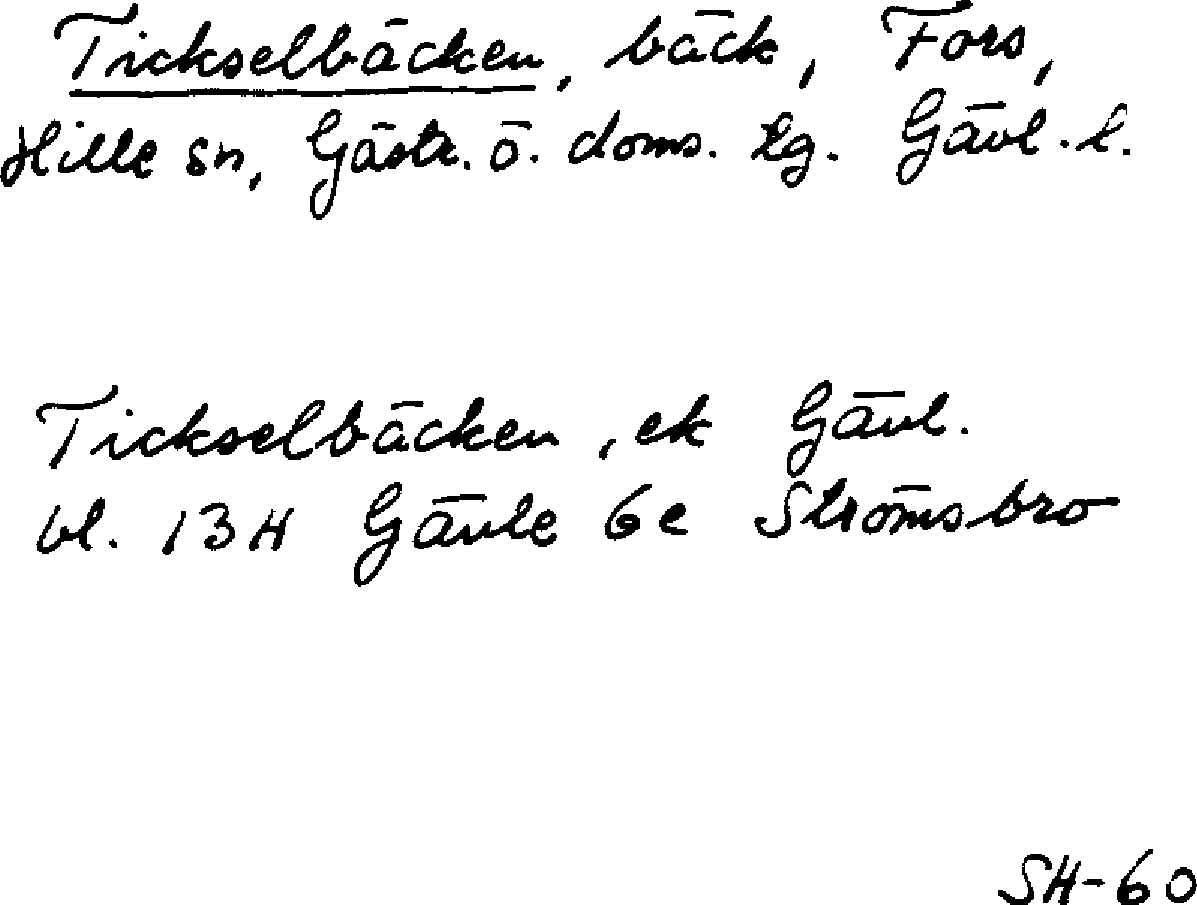 Tickselbäcken, bäck, Fors,
Hille sn, Gästr. ö. doms. tg. Gävl. l.
Tickselbäcken, ek Gävl.
bl. 13H Gävle 6e Strömsbro
SH-60